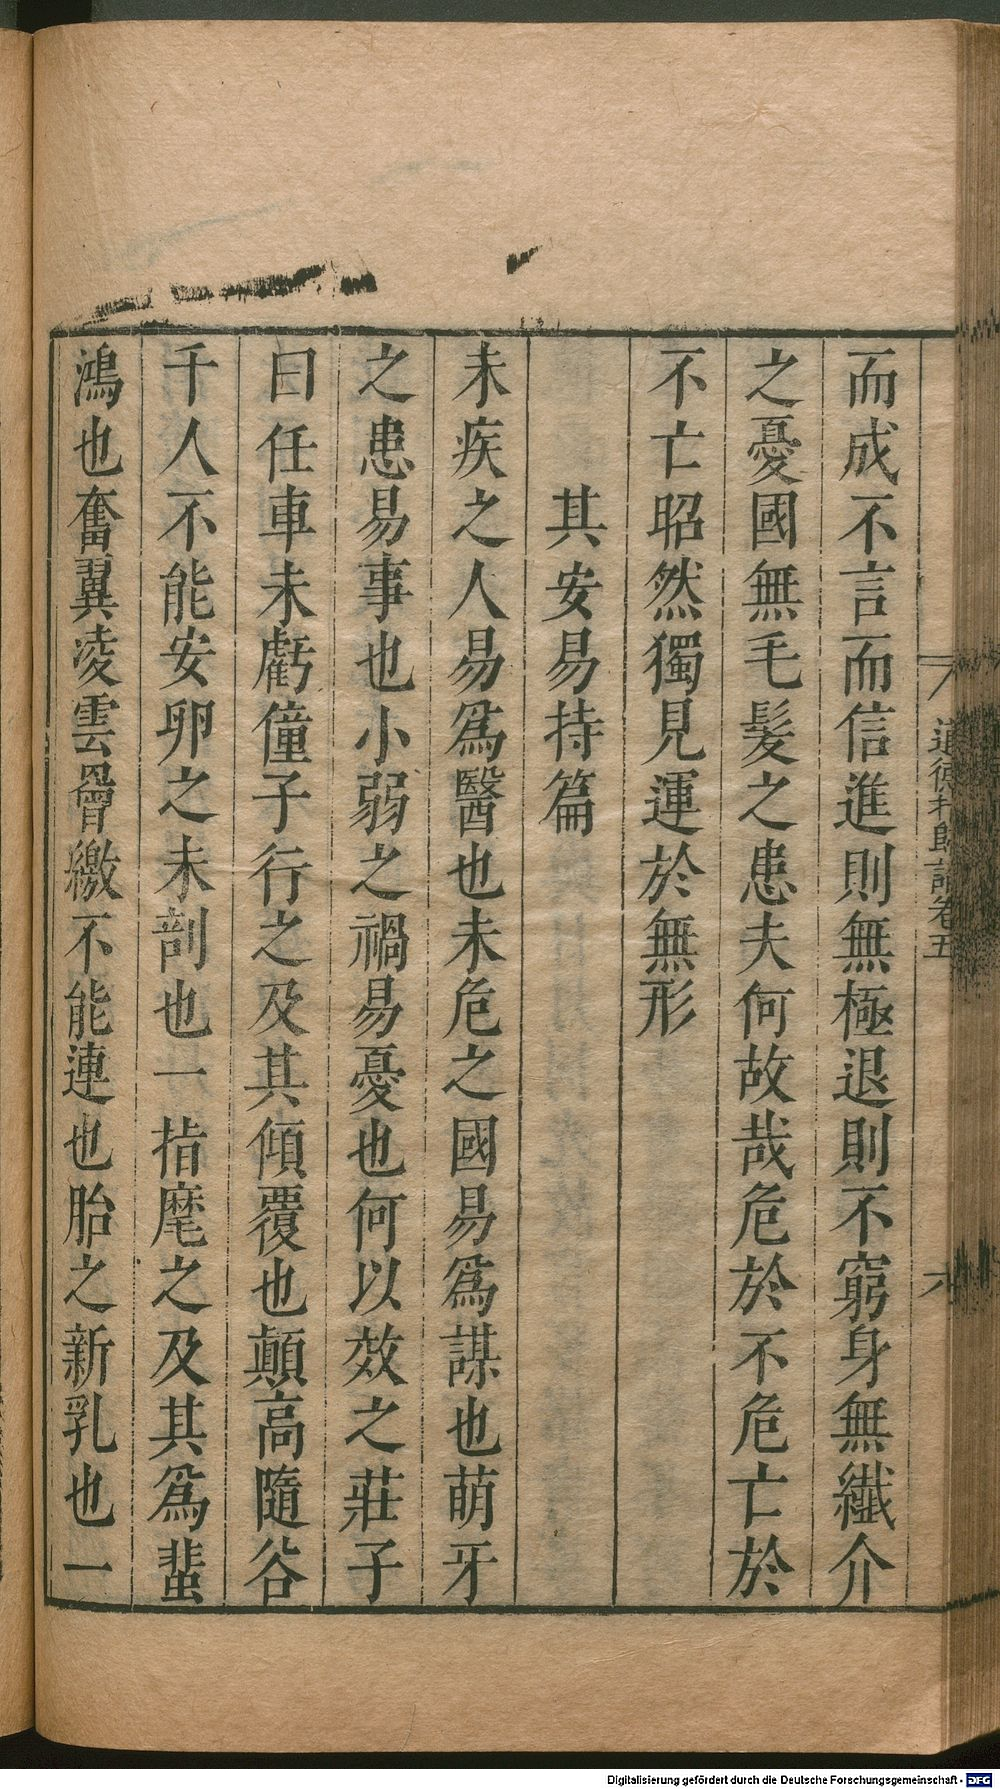 而成不言而信進則無極退則不窮身無纖介
之憂國無毛髮之患夫何故哉危於不危亡於
不亡昭然獨見運於無形
其安易持篇
未疾之人易爲醫也未危之國易爲謀也萌牙
之患易事也小弱之禍易憂也何以效之莊子
曰任車未虧僮子行之及其傾覆也顛高隨谷
千人不能安卵之未剖也一指麾之及其爲蜚
鴻也奮翼凌雲罾繳不能連也胎之新乳也一
道德指歸論卷五
六
Digitalisierung gefördert durch die Deutsche Forschungsgemeinschaft - DFG